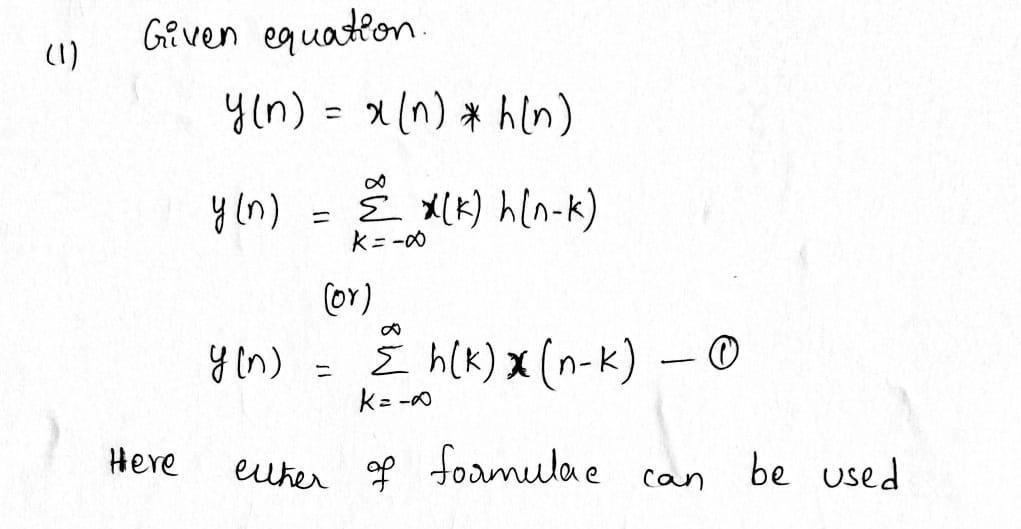 (1) Given equation.
y(n) = x(n) * h(n)
y(n) = ∞ Σ k=-∞ x(k) h(n-k)
(or)
y(n) = ∞ Σ k=-∞ h(k) x(n-k) — ①
Here either of formulae can be used